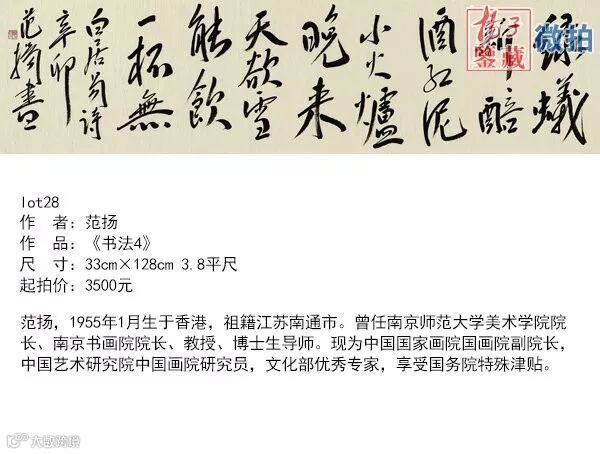 綠蟻
新醅
酒红泥
小火爐
晚来
天欲雪
能飲
一杯無
白居易詩
辛卯
范揚書
鉴藏
微拍
lot28
作 者：范扬
作 品：《书法4》
尺 寸：33cm×128cm 3.8平尺
起拍价：3500元
范扬，1955年1月生于香港，祖籍江苏南通市。曾任南京师范大学美术学院院
长、南京书画院院长、教授、博士生导师。现为中国国家画院国画院副院长，
中国艺术研究院中国画院研究员，文化部优秀专家，享受国务院特殊津贴。
大数跨境